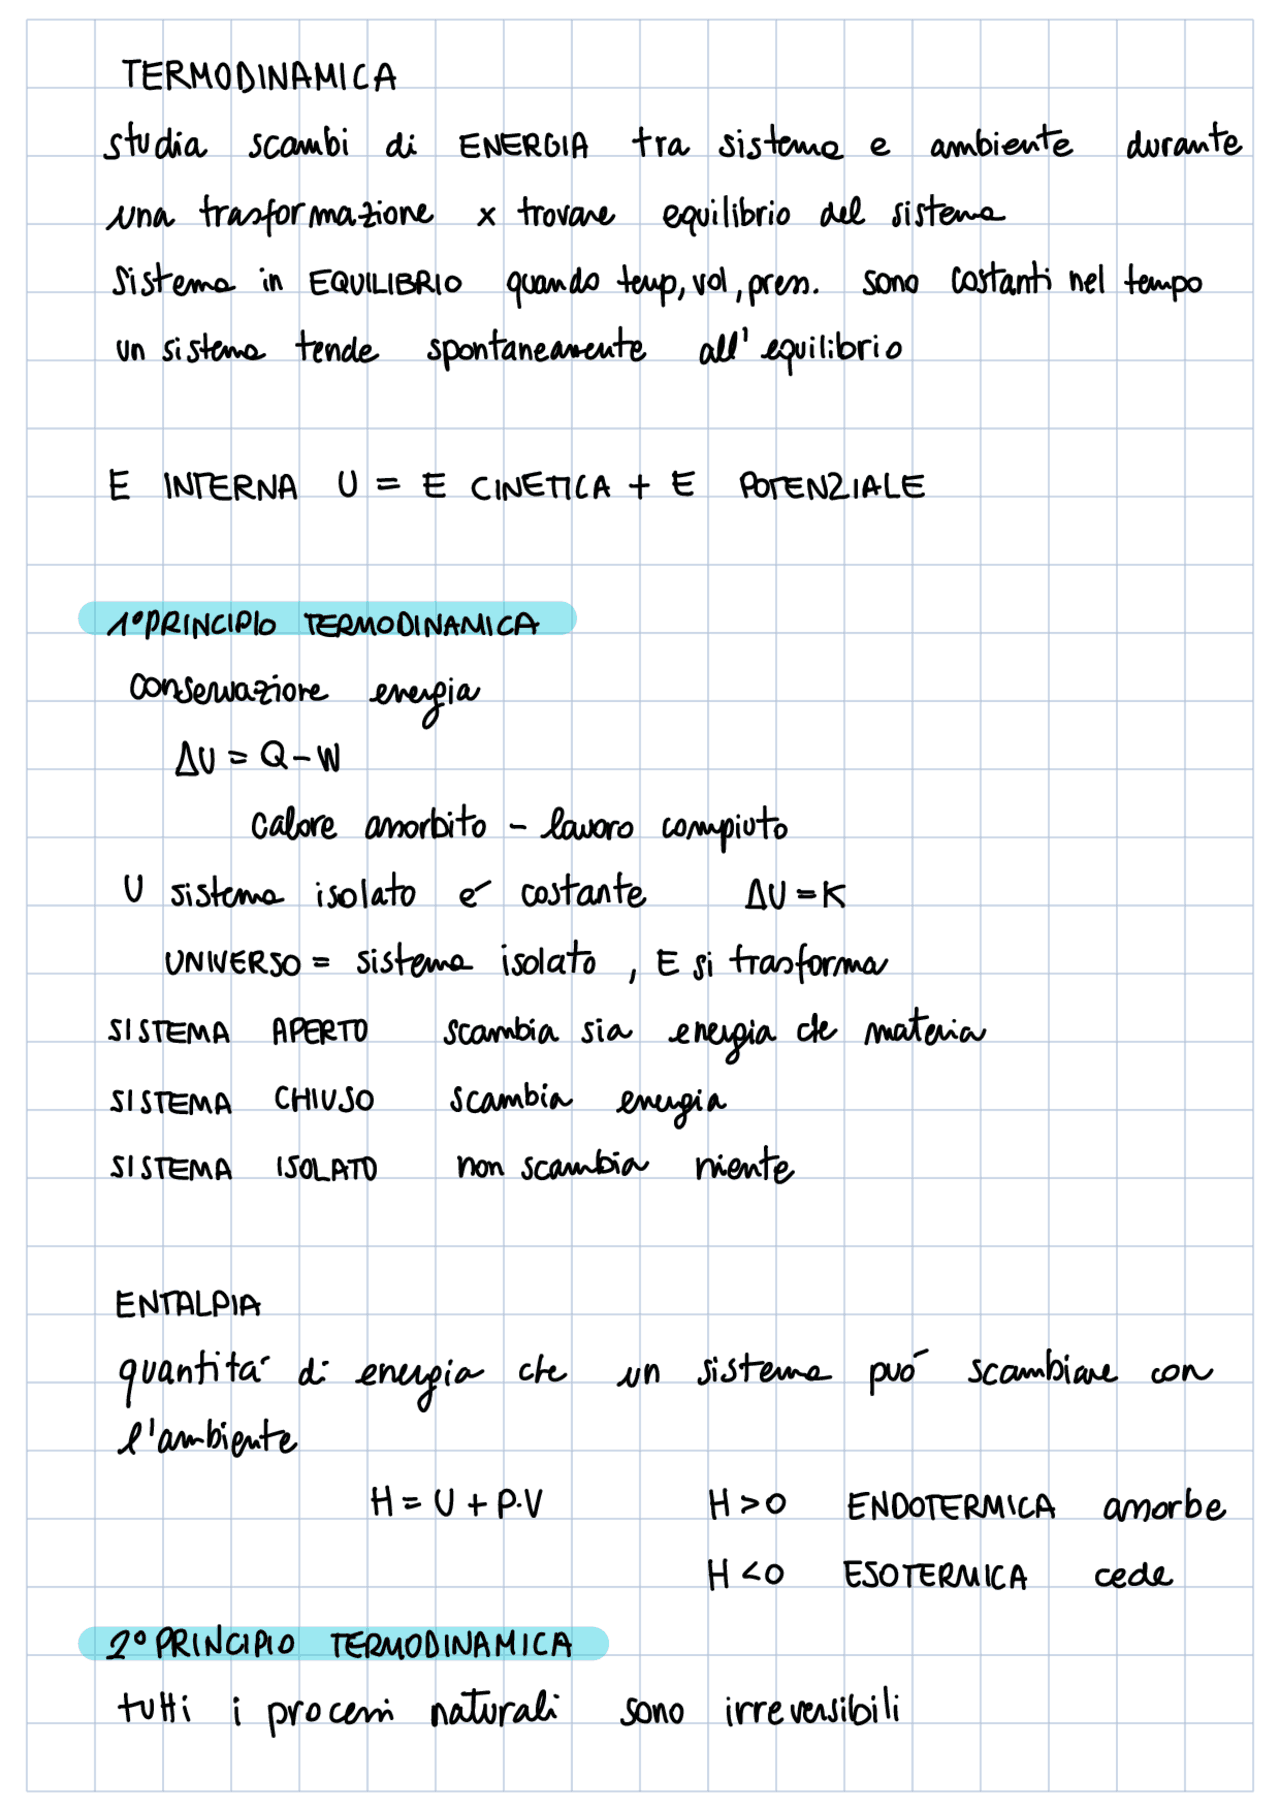 TERMODINAMICA
studia scambi di ENERGIA tra sistema e ambiente durante
una trasformazione x trovare equilibrio del sistema
Sistema in EQUILIBRIO quando temp, vol, press. sono costanti nel tempo
un sistema tende spontaneamente all'equilibrio
E INTERNA U = E CINETICA + E POTENZIALE
1° PRINCIPIO TERMODINAMICA
conservazione energia
ΔU = Q - W
calore assorbito - lavoro compiuto
U sistema isolato é costante ΔU = K
UNIVERSO = sistema isolato, E si trasforma
SISTEMA APERTO scambia sia energia che materia
SISTEMA CHIUSO scambia energia
SISTEMA ISOLATO non scambia niente
ENTALPIA
quantitá di energia che un sistema puó scambiare con
l'ambiente
H = U + P·V H > 0 ENDOTERMICA assorbe
H < 0 ESOTERMICA cede
2° PRINCIPIO TERMODINAMICA
tutti i processi naturali sono irreversibili